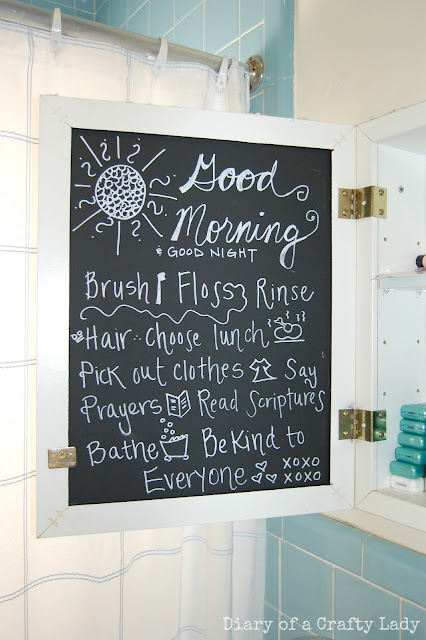 Good
Morning
& GOOD NIGHT
Brush Floss Rinse
Hair Choose lunch
Pick out clothes Say
Prayers Read Scriptures
Bathe Be Kind to
Everyone XOXO
XOXO
Diary of a Crafty Lady